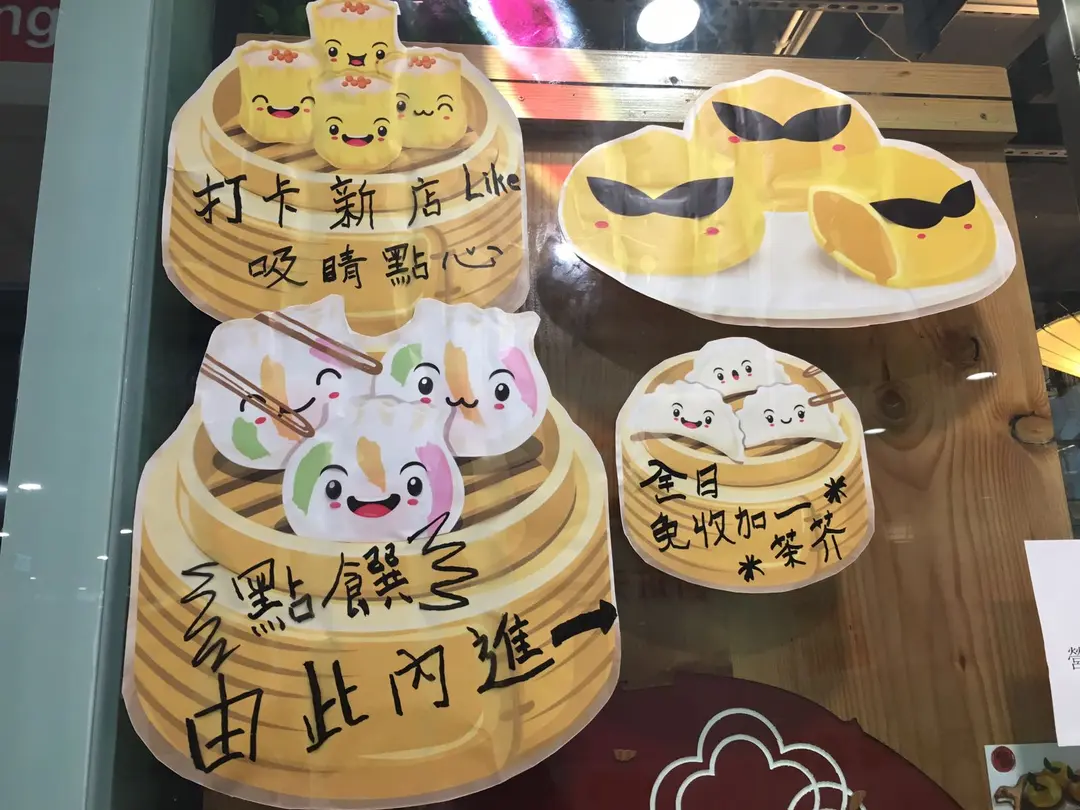 ng
打卡新店Like
吸睛點心
全日
免收加一
茶芥
點饌
由此內進
營